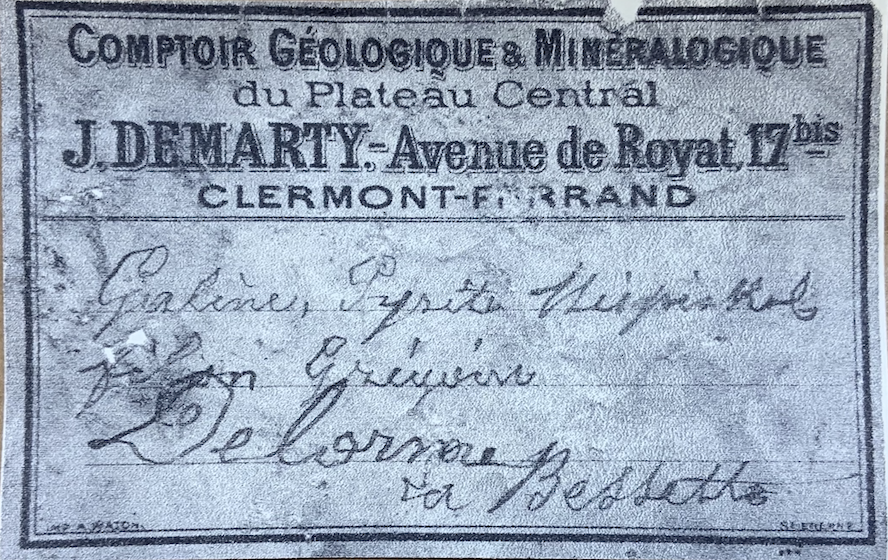 COMPTOIR GÉOLOGIQUE & MINÉRALOGIQUE
du Plateau Central
J. DEMARTY.- Avenue de Royat, 17 bis
CLERMONT-FERRAND
Galène, Pyrite Mispickel
filon Grégoire
Delorme
à Bessette
IMP. A. WATON. ST ETIENNE